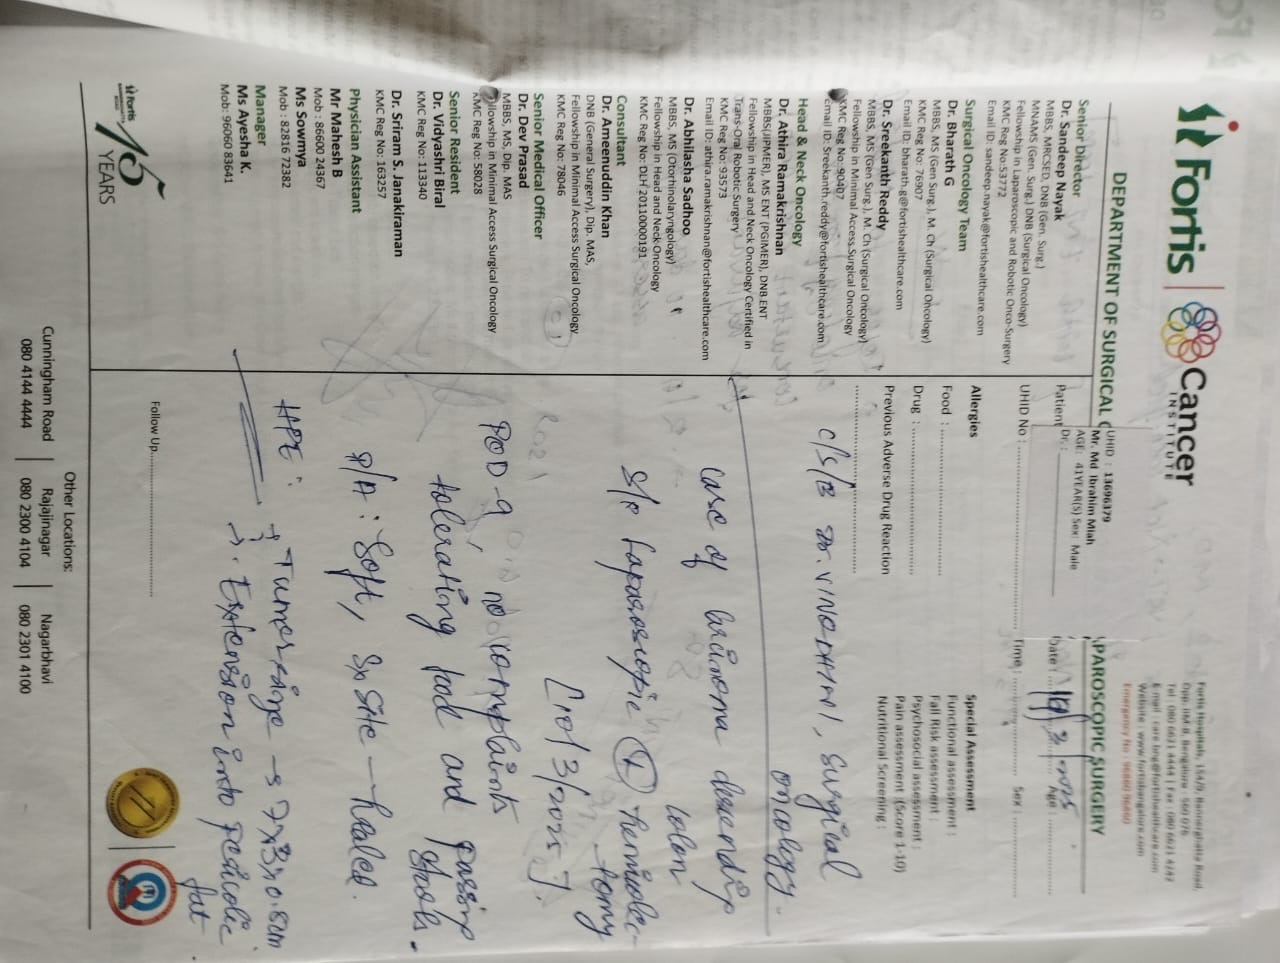 Fortis
Cancer
INSTITUTE
Fortis Hospitals, 154/9, Bannerghatta Road,
Opp. IIM-B, Bengaluru - 560 076
Tel : 080 6621 4444 | Fax : 080 6621 4242
E-mail : care.bng@fortishealthcare.com
Website : www.fortisbangalore.com
Emergency No : 96860 96860
DEPARTMENT OF SURGICAL
PAROSCOPIC SURGERY
UHID : 13696379
Mr. Md Ibrahim Miah
AGE: 41YEAR(S) Sex: Male
Dr :
Patient
Date :
Age :
UHID No :
Time :
Sex :
Senior Director
Dr. Sandeep Nayak
MBBS, MRCSED, DNB (Gen. Surg.)
MNAMS (Gen. Surg.) DNB (Surgical Oncology)
Fellowship in Laparoscopic and Robotic Onco-Surgery
KMC Reg No.53772
Email ID: sandeep.nayak@fortishealthcare.com
Surgical Oncology Team
Dr. Bharath G
MBBS, MS (Gen Surg.), M. Ch (Surgical Oncology)
KMC Reg No: 76907
Email ID: bharath.g@fortishealthcare.com
Dr. Sreekanth Reddy
MBBS, MS (Gen Surg.), M. Ch (Surgical Oncology)
Fellowship in Minimal Access Surgical Oncology
KMC Reg No: 90407
Email ID: Sreekanth.reddy@fortishealthcare.com
Head & Neck Oncology
Dr. Athira Ramakrishnan
MBBS(JIPMER), MS ENT (PGIMER), DNB ENT
Fellowship in Head and Neck Oncology Certified in
Trans-Oral Robotic Surgery
KMC Reg No: 93573
Email ID: athira.ramakrishnan@fortishealthcare.com
Dr. Abhilasha Sadhoo
MBBS, MS (Otorhinolaryngology)
Fellowship in Head and Neck Oncology
KMC Reg No: DLH 20110000191
Consultant
Dr. Ameenuddin Khan
DNB (General Surgery), Dip. MAS,
Fellowship in Minimal Access Surgical Oncology,
KMC Reg No: 78046
Senior Medical Officer
Dr. Dev Prasad
MBBS, MS, Dip. MAS
Fellowship in Minimal Access Surgical Oncology
KMC Reg No: 58028
Senior Resident
Dr. Vidyashri Biral
KMC Reg No: 113340
Dr. Sriram S. Janakiraman
KMC Reg No: 163257
Physician Assistant
Mr Mahesh B
Mob : 86600 24367
Ms Sowmya
Mob : 82816 72382
Manager
Ms Ayesha K.
Mob: 96060 83641
Allergies
Food :
Drug :
Previous Adverse Drug Reaction
Special Assessment
Functional assessment :
Fall Risk assessment :
Psychosocial assessment :
Pain assessment (Score 1-10)
Nutritional Screening :
c/s/B Dr. VINODHINI, Surgical
oncology
Case of Carcinoma descending
colon
S/P Laparoscopic (L) hemicolec-
tomy
[10/3/2025].
POD-9, no complaints
tolerating food and passing
stools.
P/A : Soft, Sx site - healed.
HPE : → Tumor size → 7x3x0.8cm
→ Extension into pericolic
fat
Follow Up
Fortis
15
YEARS
Other Locations:
Cunningham Road | Rajajinagar | Nagarbhavi
080 4144 4444 | 080 2300 4104 | 080 2301 4100